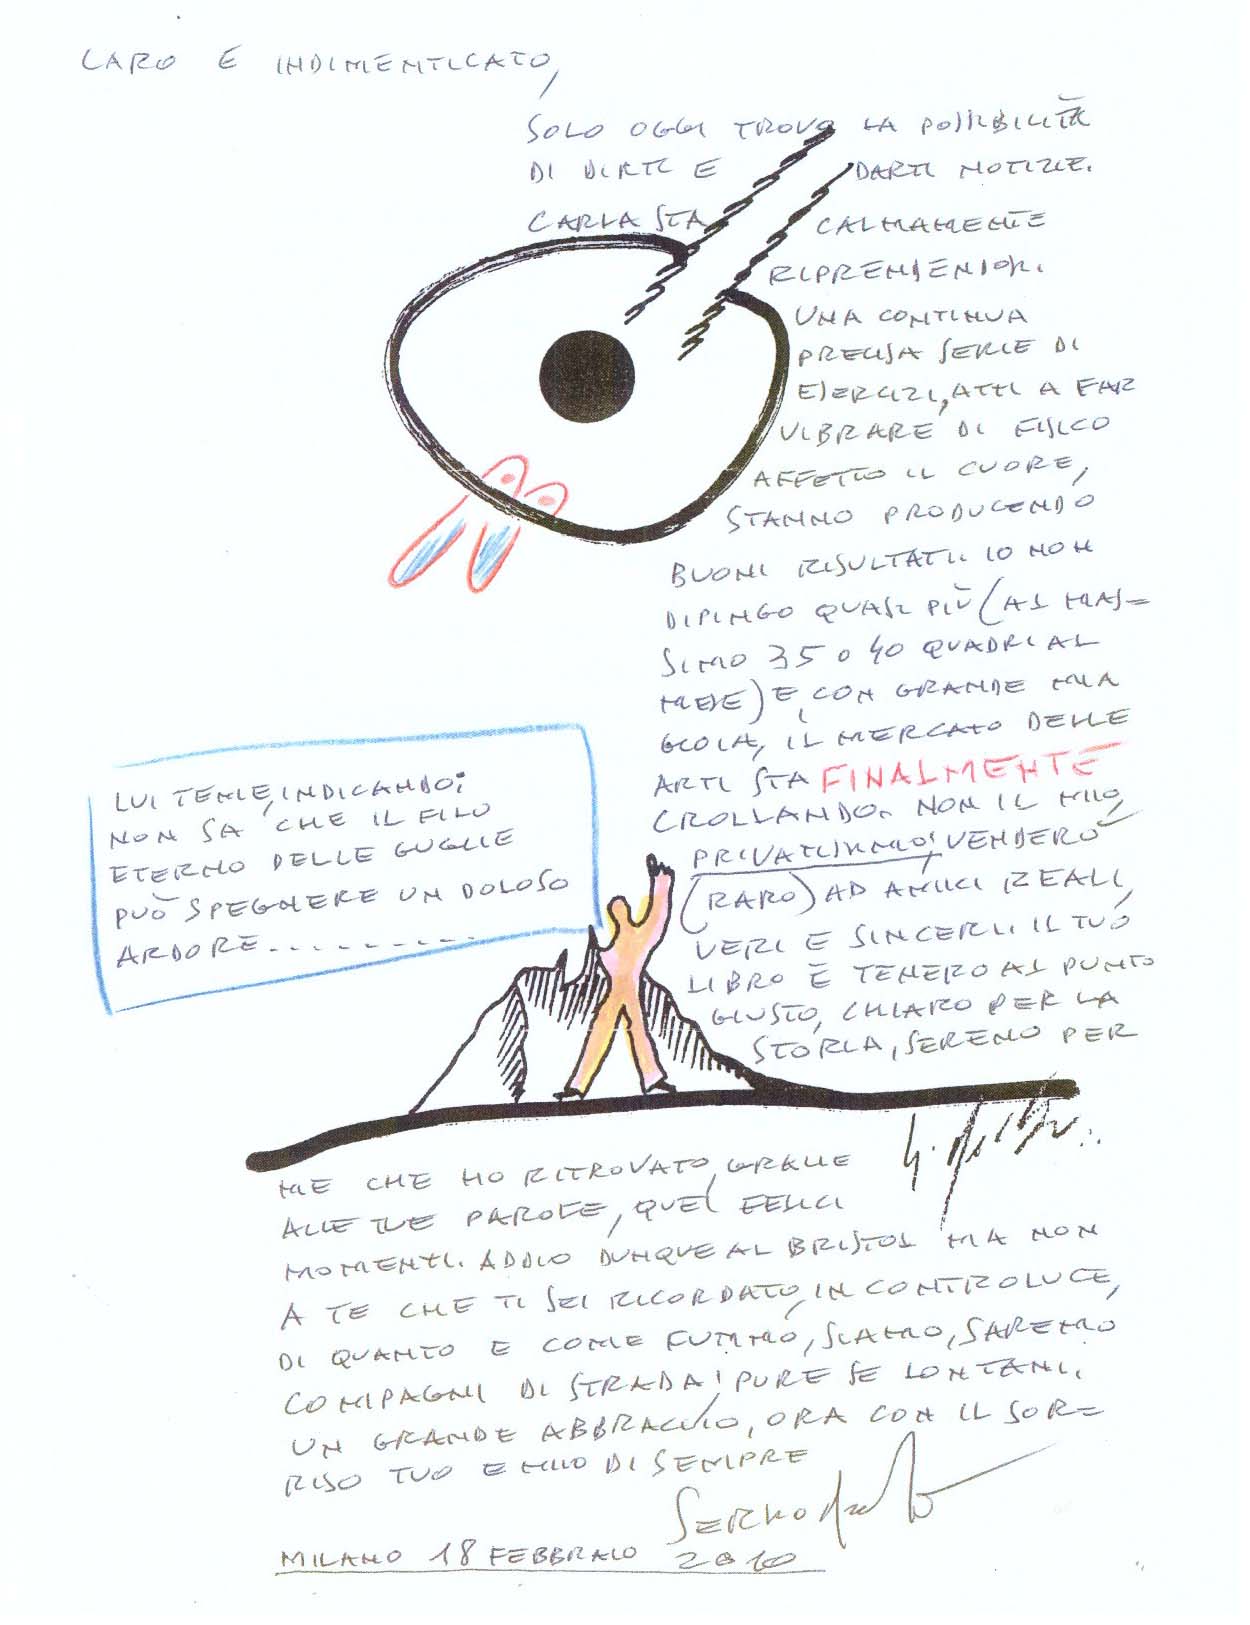 CARO E INDIMENTICATO,
SOLO OGGI TROVO LA POSSIBILITÀ
DI DIRTI E DARTI NOTIZIE.
CARLA STA CALMAMENTE
RIPRENDENDOSI.
UNA CONTINUA
PRECISA SERIE DI
ESERCIZI, ATTI A FAR
VIBRARE DI FISICO
AFFETTO IL CUORE,
STANNO PRODUCENDO
BUONI RISULTATI. IO NON
DIPINGO QUASI PIÙ (AL MAS=
SIMO 35 O 40 QUADRI AL
MESE) E, CON GRANDE MIA
GIOIA, IL MERCATO DELLE
ARTI STA FINALMENTE
CROLLANDO. NON IL MIO,
PRIVATISSIMO; VENDERÒ
(RARO) AD AMICI REALI,
VERI E SINCERI. IL TUO
LIBRO È TENERO AL PUNTO
GIUSTO, CHIARO PER LA
STORIA, SERENO PER
LUI TEME, INDICANDO:
NON SA CHE IL FILO
ETERNO DELLE GUGLIE
PUÒ SPEGNERE UN DOLOSO
ARDORE..........
ME CHE HO RITROVATO, GRAZIE
ALLE TUE PAROLE, QUEI FELICI
MOMENTI. ADDIO DUNQUE AL BRISTOL MA NON
A TE CHE TI SEI RICORDATO, IN CONTROLUCE,
DI QUANTO E COME FUMMO, SIAMO, SAREMO
COMPAGNI DI STRADA! PURE SE LONTANI.
UN GRANDE ABBRACCIO, ORA CON IL SOR=
RISO TUO E MIO DI SEMPRE
SERNO
MILANO 18 FEBBRAIO 2010